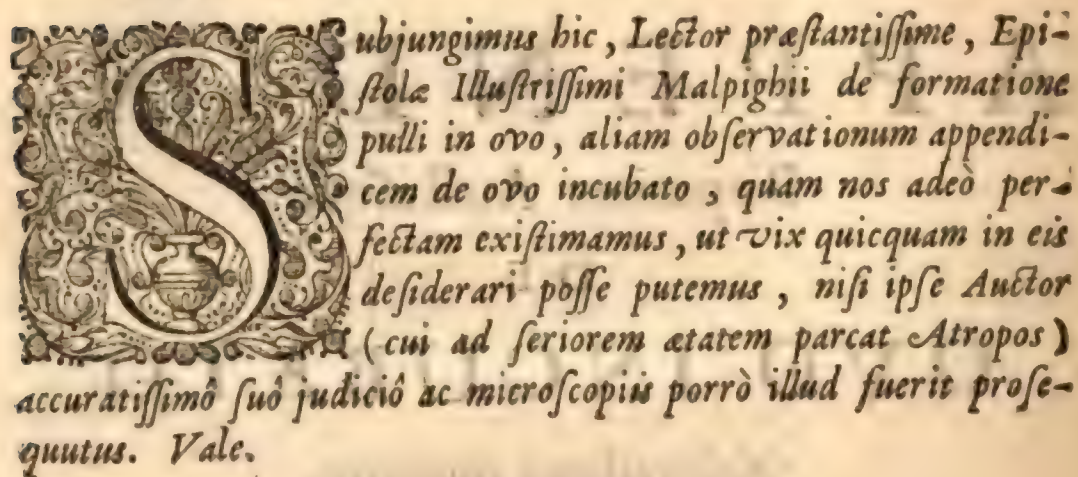 Subjungimus hic, Lector præſtantiſſime, Epi-
ſtolæ Illuſtriſſimi Malpighii de formatione
pulli in ovo, aliam obſervationum appendi-
cem de ovo incubato, quam nos adeò per-
fectam exiſtimamus, ut vix quicquam in eis
deſiderari poſſe putemus, niſi ipſe Auctor
(cui ad ſeriorem ætatem parcat Atropos)
accuratiſſimô ſuô judiciô ac microſcopiis porrò illud fuerit proſe-
quutus. Vale.